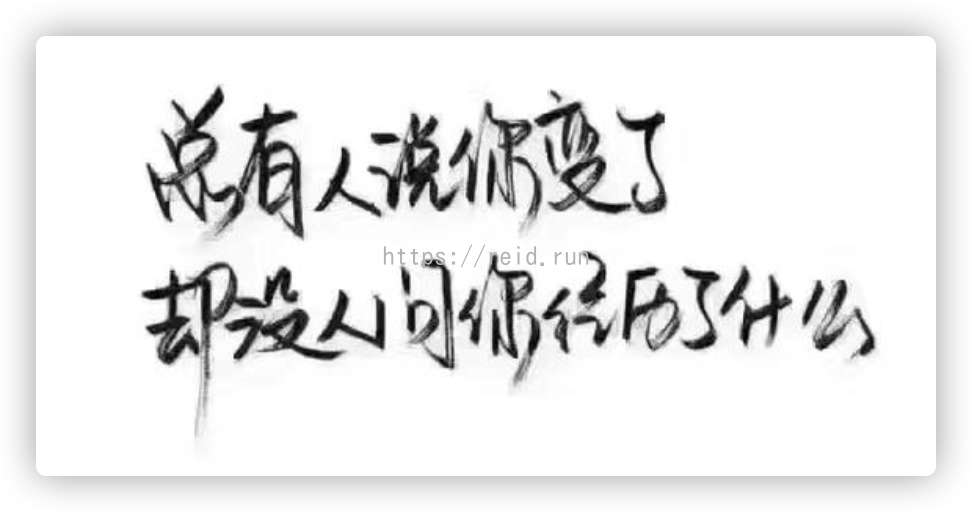 总有人说你变了
https://reid.run
却没人问你经历了什么